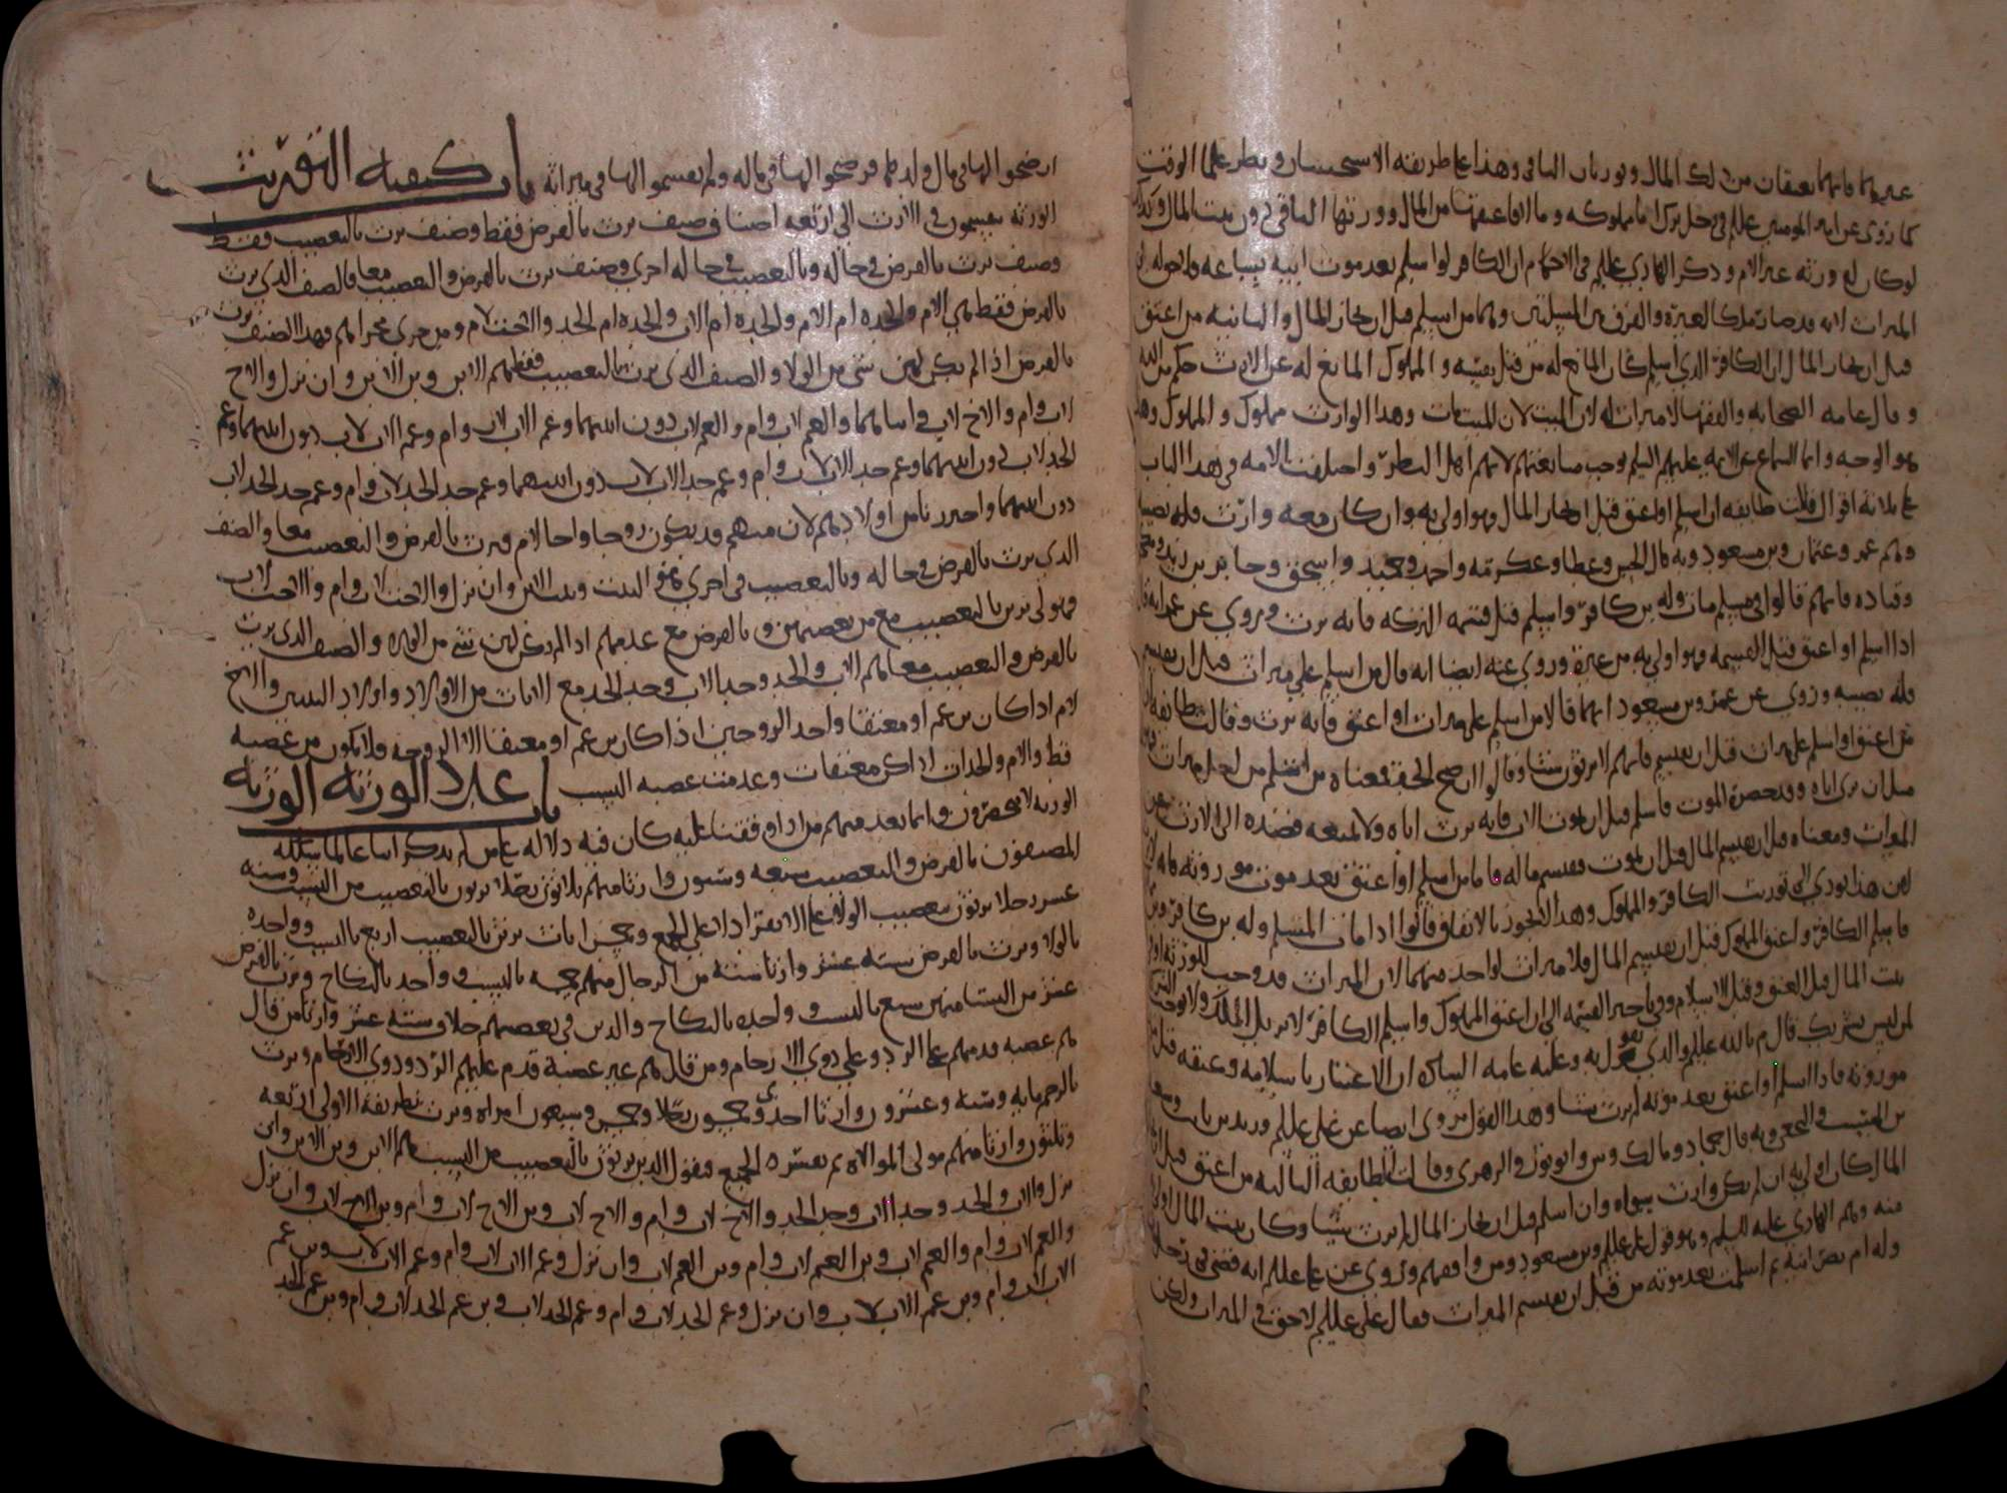 غيرهما فانهما يعتقان من ذلك المال ويورثان الباقي وهذا على طريقه الاستحسان ونظر علما الوقت
كما روي عن امير المومنين عللم في رجل ترك اما مملوكه وما الا فاعتقها من المال وورثها الباقي دون بيت المال وكذا
لوكان له ورثه غير الام وذكر الهادي عللم في الاحكام ان الكافر لو اسلم بعد موت ابيه بساعه
الميراث لانه قد صار ملكا لغيره والفرق بين المسلتين وهما من اسلم قبل ان يحاز المال والثانيه من اعتق
قبل ان يحاز المال ان الكافر الذي اسلم كان المانع له من قبل نفسه والمملوك المانع له عن الارث حكم من الله
وقال عامه الصحابه والفقها لا ميراث له لان الميت مات وهذا الوارث مملوك والمملوك
هو الوجه وانما السماع عن الايمه عليهم السلم يوجب متابعتهم لانهم اهل النظر واختلفت الامه في هذا الباب
على ثلاثه اقوال فقالت طايفه ان اسلم او اعتق قبل ان يحاز المال فهو اولى به وان كان معه وارث فله نصيبه
وهم عمر وعثمان وبن مسعود وبه قال الحسن وعطا وعكرمه واحمد وحميد واسحق وجابر بن زيد
وقتاده فانهم قالوا في مسلم مات وله بن كافر واسلم قبل قسمه التركه فانه يرث وروي عن
اذا اسلم او اعتق قبل القسمه فهو اولى به من غيره وروي عنه ايضا انه قال من اسلم على ميراث قبل ان يقسم
فله نصيبه وروي عن عمر وبن مسعود انهما قالا من اسلم على ميراث او اعتق فانه يرث وقالت طايفه
من اعتق او اسلم على ميراث قبل ان يقسم فانهم لا يرثون شيا وقالوا ان صح الخبر فمعناه من اسلم من اجل ميراث
مثل ان يرى اباه وقد حضره الموت فاسلم قبل ان يموت الاب فانه يرث اباه ولا يمنعه قصده الى الارث
الميراث ومعناه قبل ان يقسم المال قبل ان يموت فيقسم ماله فاما من اسلم او اعتق بعد موت موروثه فانه
لان هذا يودي الى توريث الكافر والمملوك وهذا لا يجوز بالاتفاق قالوا اذا مات المسلم وله بن كافر
فاسلم الكافر واعتق المملوك قبل ان يقسم المال فلا ميراث لواحد منهما لان الميراث قد وجب للورثه
بيت المال قبل العتق وقبل الاسلام وفي تاخير القسمه الى ان اعتق المملوك واسلم الكافر لا يزيل الملك
لمن ليس بشريك قال م بالله عللم والذي نقول به وعليه عامه الناس ان الاعتبار باسلامه وعتقه قبل
موروثه فاذا اسلم او اعتق بعد موته لم يرث شيا وهذا القول مروي ايضا عن علي عللم وزيد بن ثابت
بن المسيب والنخعي وبه قال حماد ومالك وش وابو ثور والزهري وقالت الطايفه الثالثه من اعتق قبل
المال كان اولى به ان لم يكن وارث سواه وان اسلم قبل ان يحاز المال لم يرث شيا وكان بيت المال اولى
منه وهم الهادي عليه السلم وهو قول علي عللم وبن مسعود ومن وافقهم وروي عن علي عللم انه قضى في رجل
وله ام نصرانيه ثم اسلمت بعد موته من قبل ان يقسم الميراث فقال علي عللم لا حق في الميراث ولكن
ارضخوا لها في مال ولدها فرضخوا لها في ماله ولم يقسموا لها في ميراثه باب كيفيه التوريث
الورثه ينقسمون في الارث الى اربعه اصناف صنف يرث بالفرض فقط وصنف يرث بالتعصيب فقط
وصنف يرث بالفرض في حاله وبالتعصيب في حاله اخرى وصنف يرث بالفرض والتعصيب معا فالصنف الذي يرث
بالفرض فقط فهي الام والجده ام الام والجده ام الاب والجده ام الجد والاخت لام ومن جرى مجراهم فهذا الصنف يرث
بالفرض اذا لم يكن لهن شي من الولا والصنف الذي يرث بالتعصيب فقط هم الابن وبن الابن وان نزل والاخ
لاب وام والاخ لاب وابناهما والعم لاب وام والعم لاب دون ابنتيهما وعم الاب لاب وام وعم الاب لاب دون ابنتيهما وعم
الجد لاب دون ابنتيهما وعم جد الاب لاب وام وعم جد الاب لاب دون ابنتيهما وعم جد الجد لاب وام وعم جد الجد لاب
دون ابنتيهما واحترزنا من اولادهم لان منهم قد يكون زوجا واخا لام فيرث بالفرض والتعصيب معا والصنف
الذي يرث بالفرض في حاله وبالتعصيب في اخرى فهو البنت وبنت الابن وان نزل والاخت لاب وام والاخت لاب
فهولى يرثن بالتعصيب مع من يعصبهن وبالفرض مع عدمهم اذا لم يكن لهن شي من الولا والصنف الذي يرث
بالفرض والتعصيب معا هم الاب والجد وجد الاب وجد الجد مع الاناث من الاولاد واولاد البنين والاخ
لام اذا كان بن عم او معتقا واحد الزوجين اذا كان بن عم او معتقا الا الزوجه فلا تكون من عصبه
قط والام والجدات اذا كن معتقات وعدمت عصبه النسب باب عدد الورثه الورثه
الورثه لا ينحصرون وانما يعد منهم من اذا وقفنا عليه كان فيه دلاله على من لم يذكر اتباعا لما
المصنفون بالفرض والتعصيب سبعه وستون وارثا منهم ثلاثون رجلا يرثون بالتعصيب من النسب وسته
عشر رجلا يرثون بتعصيب الولا على الانفراد او على الجمع وخمس اناث يرثن بالتعصيب اربع بالنسب وواحده
بالولا ويرث بالفرض سته عشر وارثا سته من الرجال منهم خمسه بالنسب وواحد بالنكاح ويرث بالفرض
عشر من النسا منهن تسع بالنسب وواحده بالنكاح والذين في تعصيبهم خلاف سته عشر وارثا من قال
هم عصبه قدمهم على الرد وعلى ذوي الارحام ومن قال هم غير عصبه قدم عليهم الرد وذوي الارحام ويرث
بالرحم مايه وسته وعشرون وارثا احدى وخمسون رجلا وخمس وسبعون امراه ويرث بطريقه الاولى اربعه
وثلثون وارثا منهم مولى الموالاه ثم نفسره الجميع فنقول الذين يرثون بالتعصيب من النسب هم الابن وبن الابن وان
نزل والاب والجد وجد الاب وجد الجد والاخ لاب وام والاخ لاب وبن الاخ لاب وام وبن الاخ لاب وان نزل
والعم لاب وام والعم لاب وبن العم لاب وام وبن العم لاب وان نزل وعم الاب لاب وام وعم الاب لاب وبن عم
الاب لاب وام وبن عم الاب لاب وان نزل وعم الجد لاب وام وعم الجد لاب وبن عم الجد لاب وام وبن عم الجد